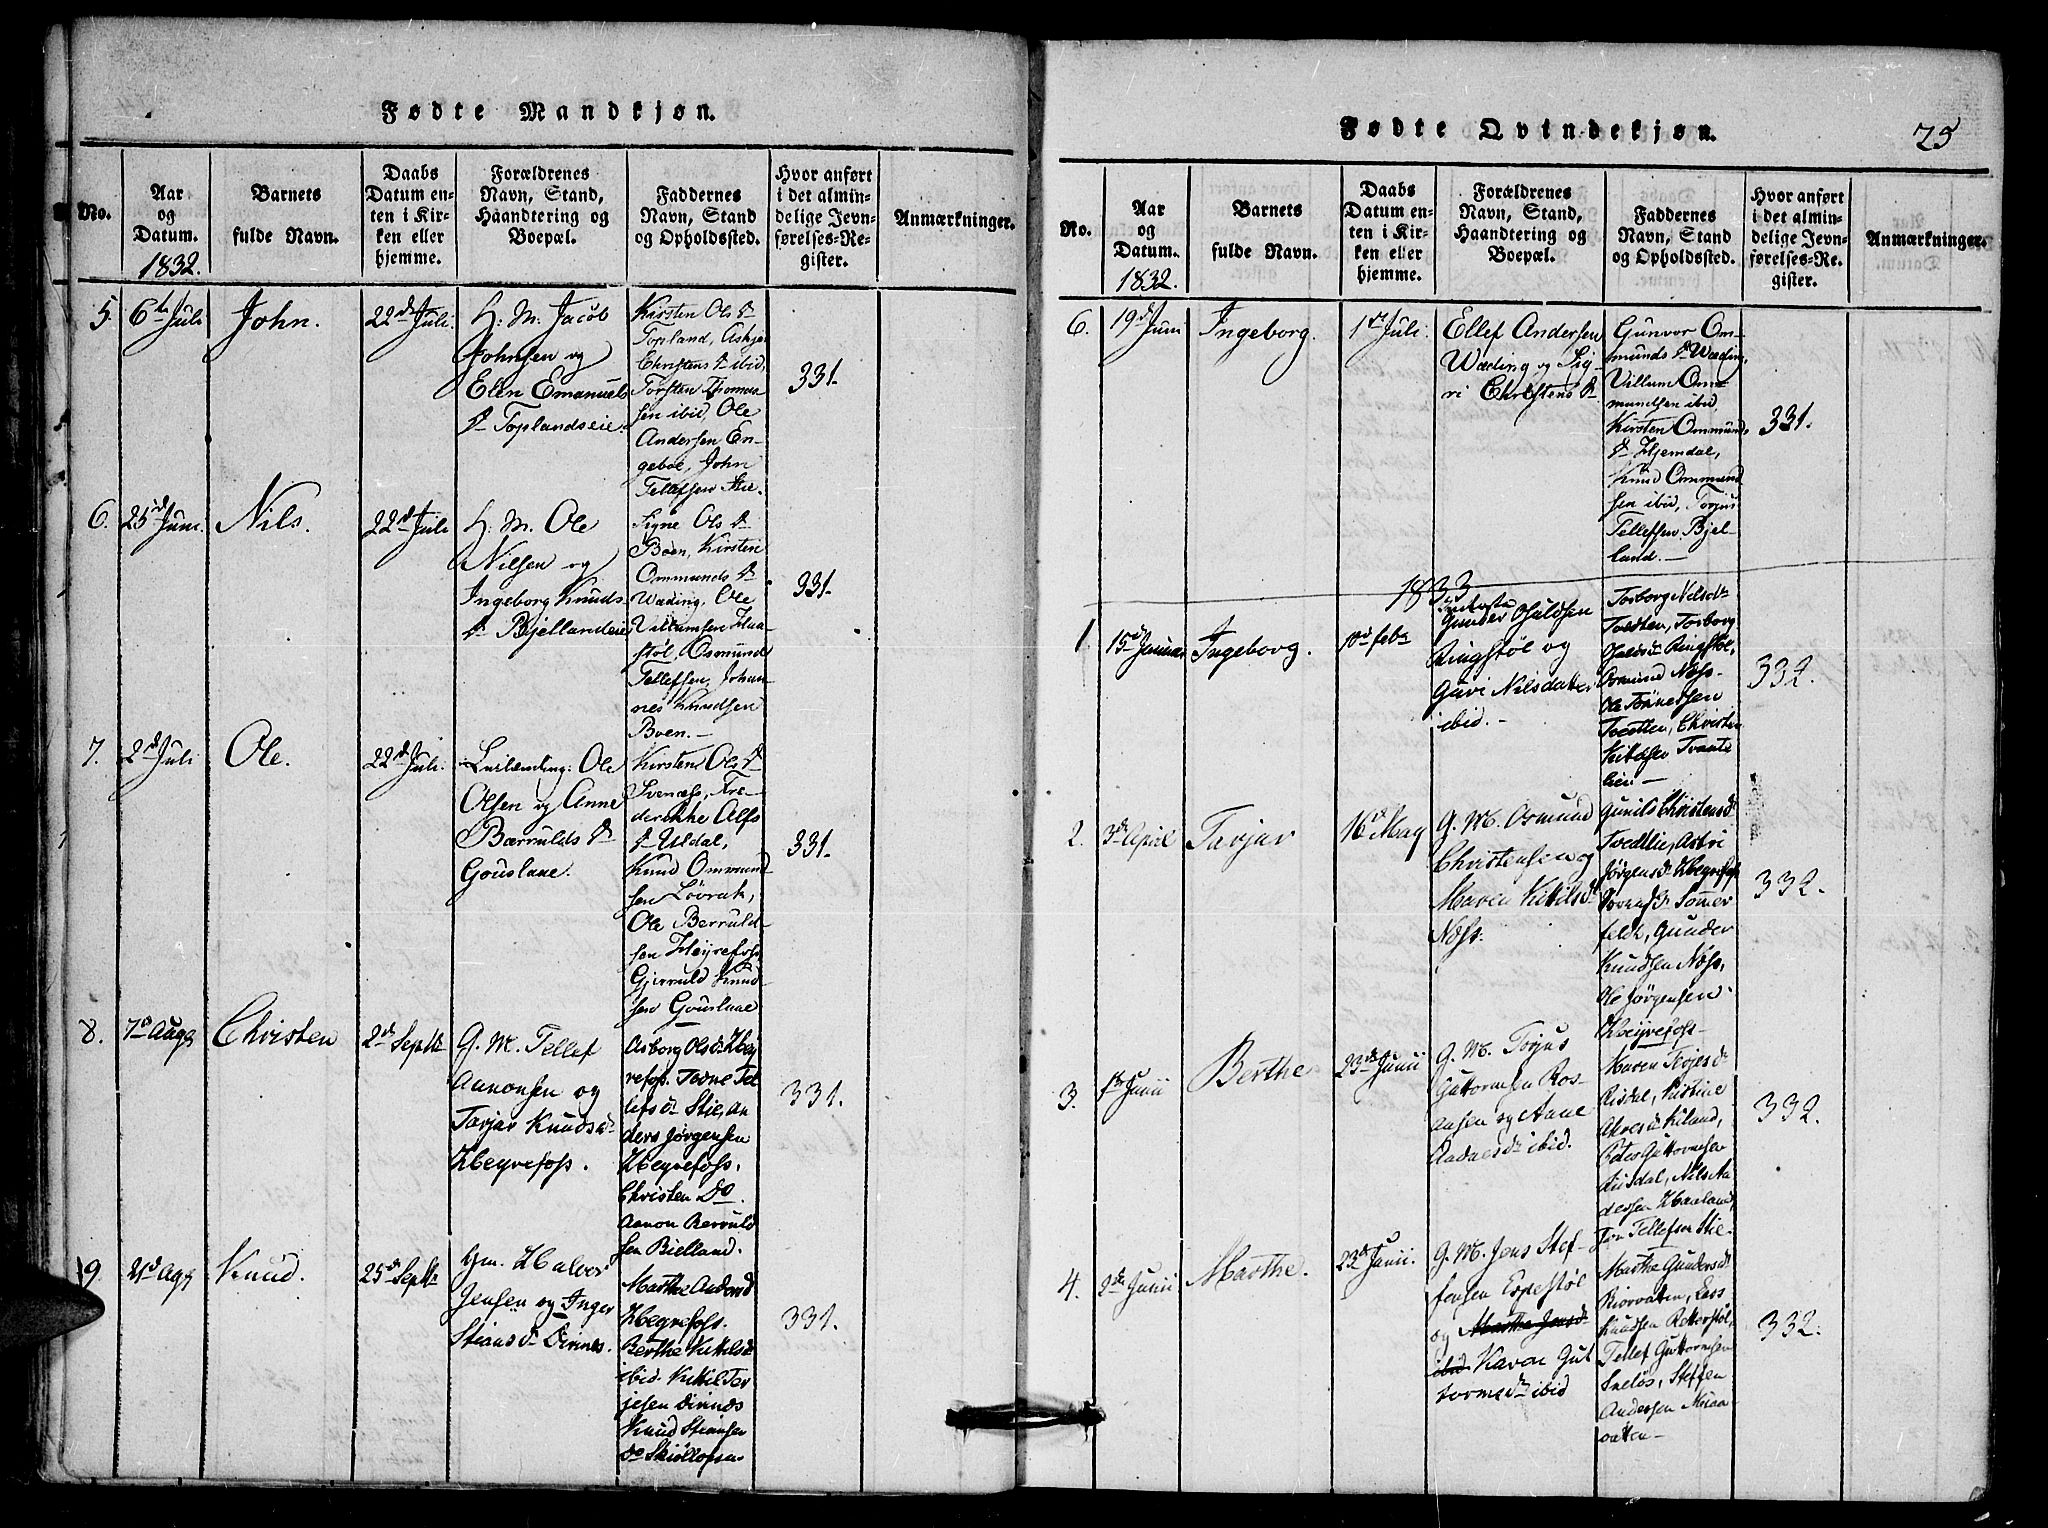 Fødte Mandkjøn.
No.
Aar
og
Datum.
1832.
Barnets
fulde Navn.
Daabs
Datum en-
ten i Kir-
ken eller
hjemme.
Forældrenes
Navn, Stand,
Haandtering og
Boepæl.
Faddernes
Navn, Stand
og Opholdssted.
Hvor anført
i det almin-
delige Jevn-
førelses-Re-
gister.
Anmærkninger.
5.
6te Juli
John.
22de Juli.
H. M. Jacob
Johnsen og
Elen Emanuels
Dr Toplandseie.
Kirsten Ols Dr
Topland, Askjer
Christens Dr ibid,
Torsten Thomas-
sen ibid, Ole
Andersen En-
geboe, John
Tellefsen
331.
6.
25d Juni
Nils.
22de Juli
H. M. Ole
Nilsen og
Ingeborg Knuds
Dr Bjellandseie
Signe Ols Dr
Boen, Kirsten
Ommunds Dr
Wæding, Ole
Villumsen
støl, Osmund
Tellefsen, Johan-
nes Knudsen
Boen.
331.
7.
2d Juli
Ole.
22de Juli.
Ole
Olsen og Anne
Bærrulds Dr
Gouslane.
Kirsten Ols Dr
Svenæss, Fre-
derikke Alfs
Dr Uldal,
Knud Ommund-
sen Løvrak,
Ole Berruld-
sen Heyrefoss,
Gjerruld Knud
sen Gouslane
331.
8.
7d Augs
Christen
2d Septbr
G. M. Tellef
Aanonsen og
Tarjar Knudsd.
Heyrefoss.
Asborg Olsdr Hey
refoss. Tarne Tel
lefsdr Stie, An
ders Jørgensen
Heyrefoss.
Christen Do
Aanon Berruld
sen Bielland.
331.
9.
21d Aug
Knud.
25de Septbr
Gm. Halvor
Jensen og Inger
Stiansdr Dirines.
Marthe Andersd
Heyrefoss.
Berthe Kittilsdr
ibid. Kittil Ter
jesen Dirines
Knud Stiansen
do
331.
Fødte Qvindekjøn.
25
No.
Aar
og
Datum.
1832.
Barnets
fulde Navn.
Daabs
Datum en-
ten i Kir-
ken eller
hjemme.
Forældrenes
Navn, Stand,
Haandtering og
Boepæl.
Faddernes
Navn, Stand
og Opholdssted.
Hvor anført
i det almin-
delige Jevn-
førelses-Re-
gister.
Anmærkninger.
6.
19d Juni
Ingeborg.
1ste Juli.
Ellef Andersen
Wæding og Sig-
ri Christens Dr
Gunvor Om-
munds Dr Wæding,
Villum Om-
mundsen ibid,
Kirsten Ommunds
Dr Hjemdal,
Knud Ommund
sen ibid, Torjus
Tellefsen Bjel-
land.
331.
1833
1.
15d Januar
Ingeborg.
10d febr
Gunder Osuldsen
Ringstøl og
Guri Nilsdatter
ibid.
Torborg Nilsdr
Tvedten, Torborg
Osulsdr Ringstøl,
Osmund Næss.
Ole Tønnessen
Tvedten, Christen
Kittelsen Tvante
lien
332.
2.
3d April
Tarjar
16d May
G. M. Osmund
Christensen og
Maren Kittilsdr
Næss.
Gunild Christensd
Tvedtlie, Astri
Jørgensdr Heyrefoss
Sommer
feldt, Gunder
Knudsen Næss,
Ole Jørgensen
Heyrefoss
332.
3.
1ste Junii
Berthe
23de Junii
G. M. Torjus
Guttormsen Ros-
ansen og Aane
Aadnesdr ibid.
Maren Terjesdr
Risdal, Kistine
Kiland,
Peder Guttormsen
Risdal, Nils An
dersen Haaland,
Jon Tellefsen Stie
332.
4.
2de Junii
Marthe.
23de Junii.
G. M. Jens Stef-
fensen Espestøl
og Marthe Jensdr
ibid Karen Gut
tormsdr ibid
Marthe Gundersdr
Biorvatten, Lars
Knudsen Retterstøl,
Tellef Guttormsen
Sneløs, Steffen
Andersen
vatten
332.